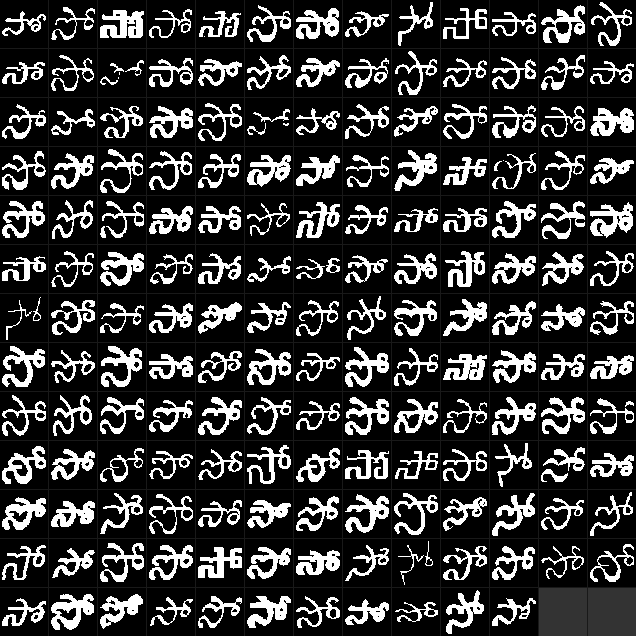 సో సో సో సో సో సో సో సో సో సో సో సో సో
సో సో సో సో సో సో సో సో సో సో సో సో సో
సో సో సో సో సో సో సో సో సో సో సో సో సో
సో సో సో సో సో సో సో సో సో సో సో సో సో
సో సో సో సో సో సో సో సో సో సో సో సో సో
సో సో సో సో సో సో సో సో సో సో సో సో సో
సో సో సో సో సో సో సో సో సో సో సో సో సో
సో సో సో సో సో సో సో సో సో సో సో సో సో
సో సో సో సో సో సో సో సో సో సో సో సో సో
సో సో సో సో సో సో సో సో సో సో సో సో సో
సో సో సో సో సో సో సో సో సో సో సో సో సో
సో సో సో సో సో సో సో సో సో సో సో సో సో
సో సో సో సో సో సో సో సో సో సో సో